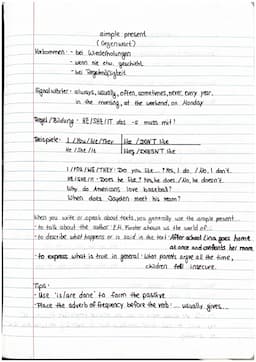 simple present
(Gegenwart)
Vorkommen: - bei Wiederholungen
- wenn nie etw. geschieht
- bei Regelmäßigkeit
Signalwörter: always, usually, often, sometimes, never, every year,
in the morning, at the weekend, on Monday
Regel/Bildung: HE/SHE/IT das -s muss mit!
Beispiele: I/You/We/They like/DON'T like
He/She/It likes/DOESN'T like
I/YOU/WE/THEY: Do you like ...? Yes, I do. / No, I don't.
HE/SHE/IT: Does he like? Yes, he does./No, he doesn't.
Why do Americans love baseball?
When does Jayden meet his team?
When you write or speak about texts, you generally use the simple present...
- to talk about the author: E.H. Forster shows us the world of...
- to describe what happens or is said in the text: After school Lina goes home
at once and confronts her mom
- to express what is true in general: What parents argue all the time,
children feel insecure.
Tips:
- Use 'is/are done' to form the passive
- Place the adverb of frequency before the verb: ... usually gives...